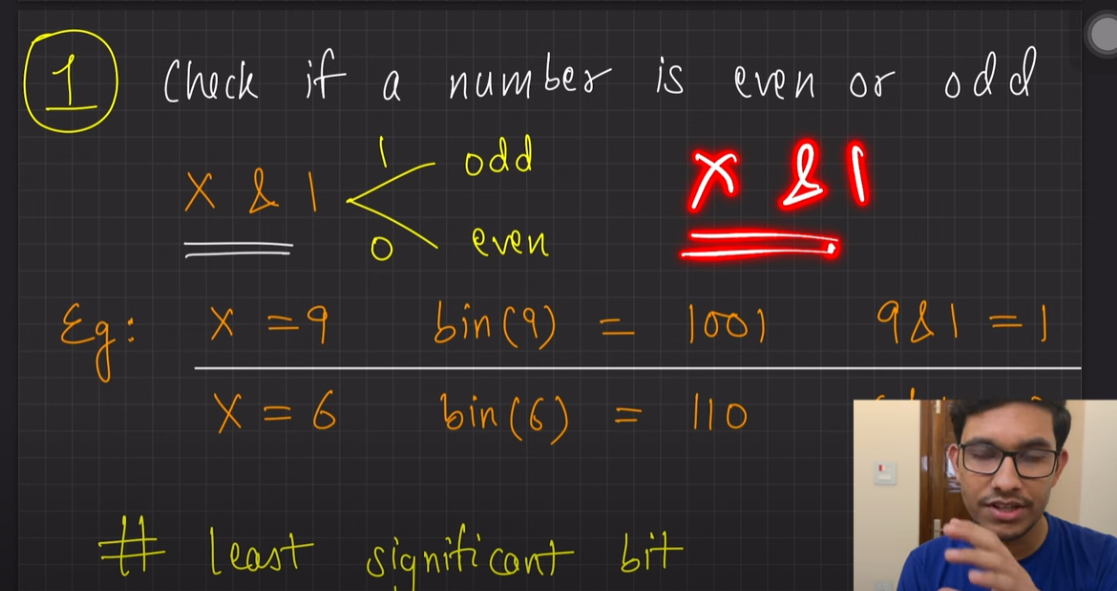 1 Check if a number is even or odd
X & 1 1 odd X & 1
0 even
Eg: X = 9 bin(9) = 1001 9 & 1 = 1
X = 6 bin(6) = 110
# least significant bit